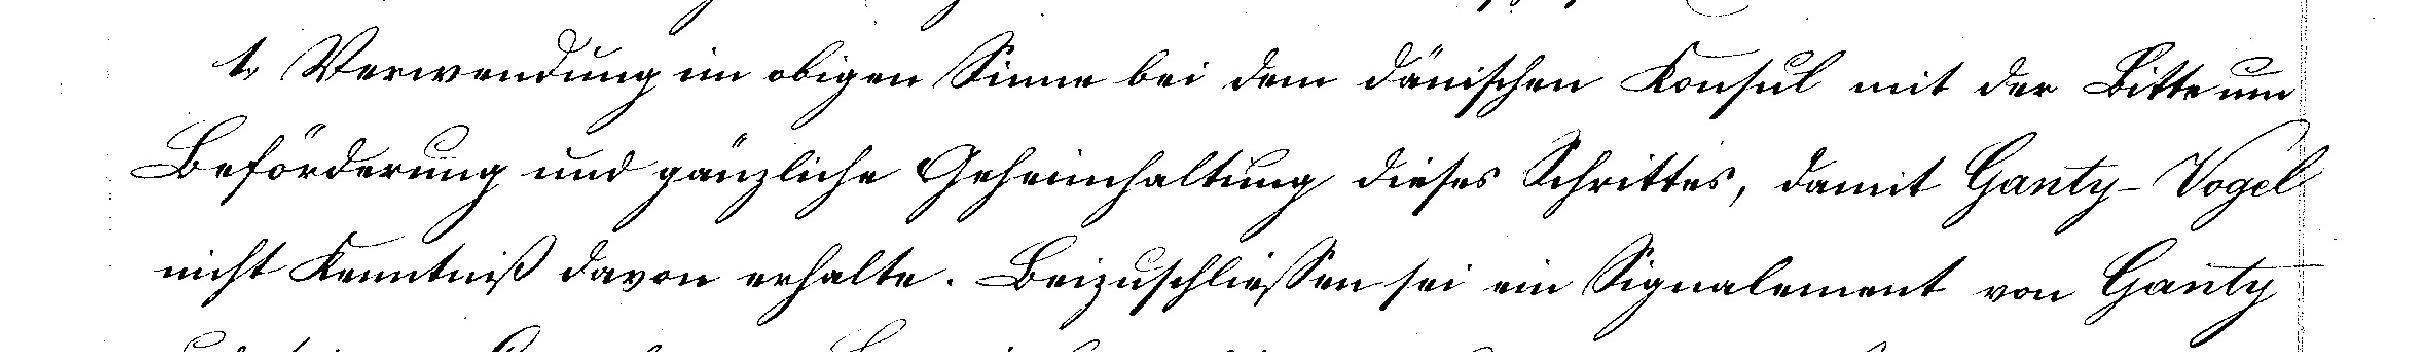 1. Verwendung im obigen Sinne bei dem dänischen Konsul mit der Bitte um
Beförderung und gänzliche Geheimhaltung dieses Schrittes, damit Ganty-Vogel
nicht Kenntniß davon erhalte. Beizuschliessen sei ein Signalement von Ganty